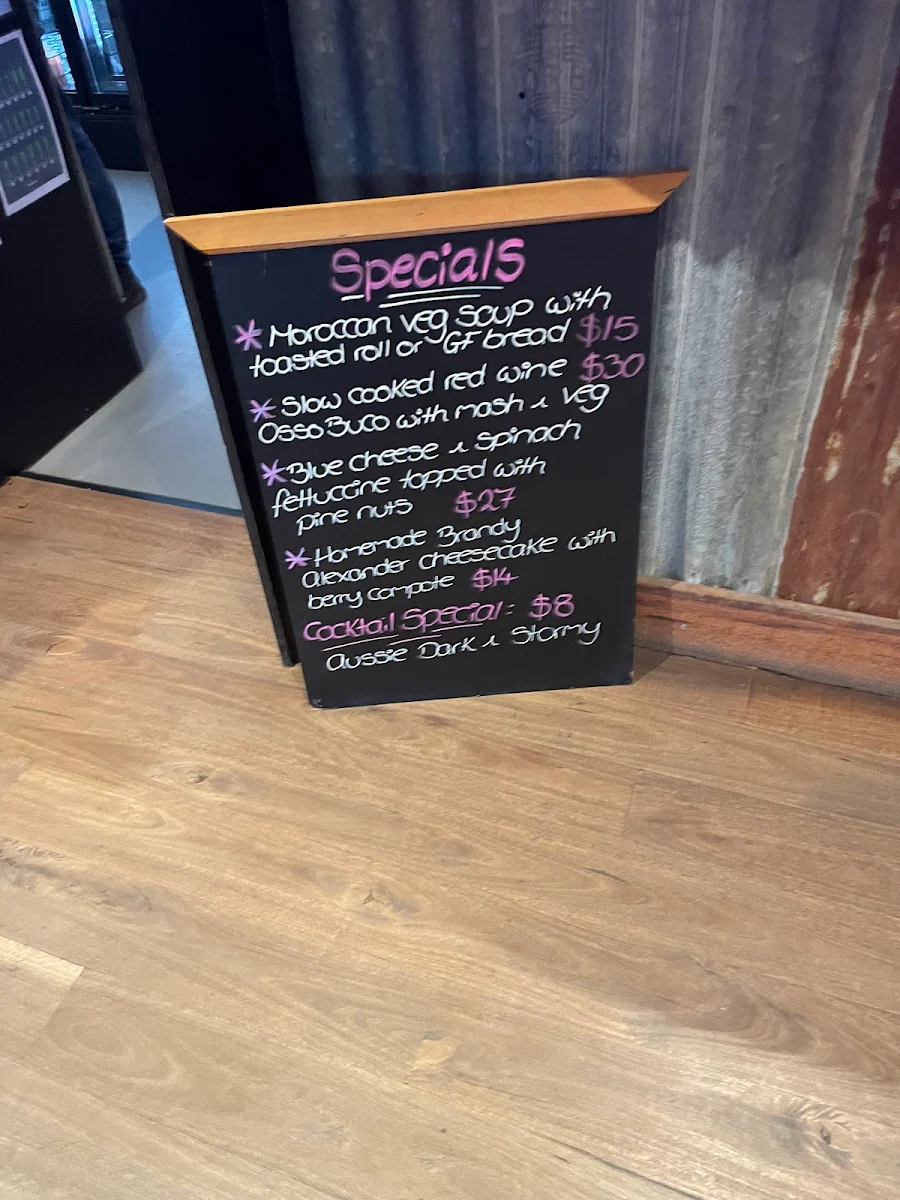 Specials
* Moroccan veg Soup with
toasted roll or GF bread $15
* Slow cooked red wine $30
Osso Buco with mash & veg
* Blue cheese & Spinach
fettuccine topped with
pine nuts $27
* Homemade Brandy
Alexander cheesecake with
berry compote $14
Cocktail Special: $8
Aussie Dark & Stormy